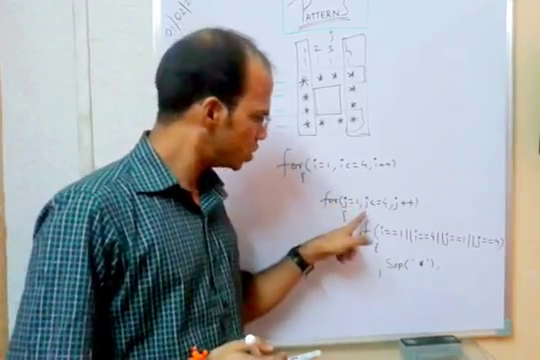 PATTERNS
j
1 2 3 4
* * * *
* *
* *
* * * *
for(i=1, i<=4, i++)
{
for(j=1, j<=4, j++)
{
if(i==1||i==4||j==1||j==4)
{
Sop("*"),